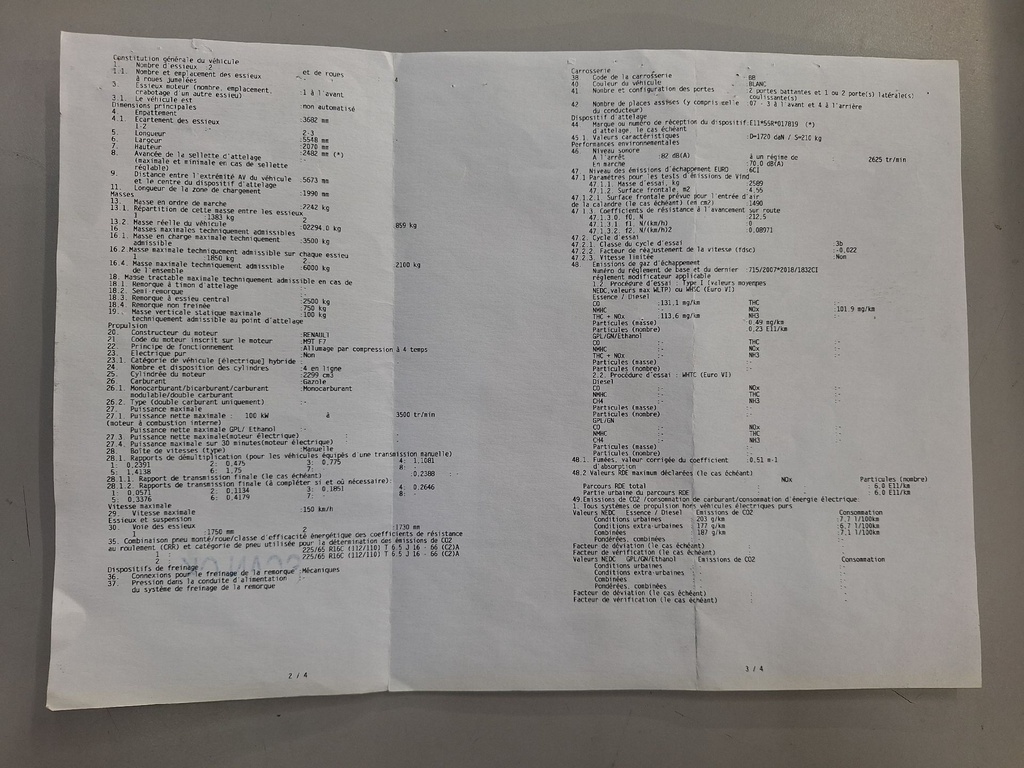 Constitution générale du véhicule
1. Nombre d'essieux :2 et de roues :4
1.1. Nombre et emplacement des essieux
à roues jumelées :-
3. Essieux moteur (nombre, emplacement,
crabotage d'un autre essieu) :1 à l'avant
3.1. Le véhicule est :non automatisé
Dimensions principales
4. Empattement :3682 mm
4.1. Ecartement des essieux
1-2 :
5. Longueur :5548 mm
6. Largeur :2070 mm
7. Hauteur :2482 mm (*)
8. Avancée de la sellette d'attelage
(maximale et minimale en cas de sellette
réglable)
9. Distance entre l'extrémité AV du véhicule
et le centre du dispositif d'attelage :5673 mm
11. Longueur de la zone de chargement :1990 mm
Masses
13. Masse en ordre de marche :2242 kg
13.1. Répartition de cette masse entre les essieux
1 :1383 kg 2 :859 kg
13.2. Masse réelle du véhicule :02294.0 kg
16. Masses maximales techniquement admissibles
16.1. Masse en charge maximale techniquement
admissible :3500 kg
16.2.Masse maximale techniquement admissible sur chaque essieu
1 :1850 kg 2 :2100 kg
16.4. Masse maximale techniquement admissible :6000 kg
de l'ensemble
18. Masse tractable maximale techniquement admissible en cas de
18.1. Remorque à timon d'attelage :-
18.2. Semi-remorque :-
18.3. Remorque à essieu central :2500 kg
18.4. Remorque non freinée :750 kg
19. Masse verticale statique maximale :100 kg
techniquement admissible au point d'attelage
Propulsion
20. Constructeur du moteur :RENAULT
21. Code du moteur inscrit sur le moteur :M9T F7
22. Principe de fonctionnement :Allumage par compression à 4 temps
23. Electrique pur :Non
23.1. Catégorie de véhicule [électrique] hybride :-
24. Nombre et disposition des cylindres :4 en ligne
25. Cylindrée du moteur :2299 cm3
26. Carburant :Gazole
26.1. Monocarburant/bicarburant/carburant :Monocarburant
modulable/double carburant
26.2. Type (double carburant uniquement) :-
27. Puissance maximale
27.1. Puissance nette maximale : 100 kW à 3500 tr/min
(moteur à combustion interne)
Puissance nette maximale GPL/ Ethanol :-
27.3. Puissance nette maximale(moteur électrique) :
27.4. Puissance maximale sur 30 minutes(moteur électrique) :
28. Boîte de vitesses (type) :Manuelle
28.1. Rapports de démultiplication (pour les véhicules équipés d'une transmission manuelle)
1: 0.2391 2: 0.475 3: 0.775 4: 1.1081
5: 1.4138 6: 1.75 7: 8: -
28.1.1. Rapport de transmission finale (le cas échéant) :0.2388 :-
28.1.2. Rapports de transmission finale (à compléter si et où nécessaire):
1: 0.0571 2: 0.1134 3: 0.1851 4: 0.2646
5: 0.3376 6: 0.4179 7: 8: -
Vitesse maximale
29. Vitesse maximale :150 km/h
Essieux et suspension
30. Voie des essieux
1 :1750 mm 2 :1730 mm
35. Combinaison pneu monté/roue/classe d'efficacité énergétique des coefficients de résistance
au roulement (CRR) et catégorie de pneu utilisée pour la détermination des émissions de CO2
1 : 225/65 R16C (112/110) T 6.5 J 16 - 66 (C2)A
2 : 225/65 R16C (112/110) T 6.5 J 16 - 66 (C2)A
Dispositifs de freinage
36. Connexions pour le freinage de la remorque :Mécaniques
37. Pression dans la conduite d'alimentation :-
du système de freinage de la remorque
2 / 4
Carrosserie
38 Code de la carrosserie : BB
40 Couleur du véhicule :BLANC
41 Nombre et configuration des portes :2 portes battantes et 1 ou 2 porte(s) latérale(s)
coulissante(s)
42 Nombre de places assises (y compris celle :07 - 3 à l'avant et 4 à l'arrière
du conducteur)
Dispositif d'attelage
44 Marque ou numéro de réception du dispositif:E11*55R*017819 (*)
d'attelage, le cas échéant
45.1. Valeurs caractéristiques :D=1720 daN / S=210 kg
Performances environnementales
46. Niveau sonore
A l'arrêt :82 dB(A) à un régime de 2625 tr/min
En marche :70.0 dB(A)
47. Niveau des émissions d'échappement EURO :6CI
47.1 Paramètres pour les tests d'émissions de Vind
47.1.1. Masse d'essai, kg :2589
47.1.2. Surface frontale, m2 :4.55
47.1.2.1. Surface frontale prévue pour l'entrée d'air
de la calandre (le cas échéant) (en cm2) :1490
47.1.3. Coefficients de résistance à l'avancement sur route
47.1.3.0. f0, N :212.5
47.1.3.1. f1, N/(km/h) :0
47.1.3.2. f2, N/(km/h)2 :0.08971
47.2. Cycle d'essai
47.2.1. Classe du cycle d'essai :3b
47.2.2. Facteur de réajustement de la vitesse (fdsc) :-0.022
47.2.3. Vitesse limitée :Non
48. Emissions de gaz d'échappement
Numéro du règlement de base et du dernier :715/2007*2018/1832CI
règlement modificateur applicable
1.2. Procédure d'essai : Type I (valeurs moyennes
NEDC,valeurs max WLTP) ou WHSC (Euro VI)
Essence / Diesel
CO :131.1 mg/km THC :-
NMHC :- NOx :101.9 mg/km
THC + NOx :113.6 mg/km NH3 :-
Particules (masse) :0.49 mg/km
Particules (nombre) :0.23 E11/km
GPL/GN/Ethanol
CO :- THC :-
NMHC :- NOx :-
THC + NOx :- NH3 :-
Particules (masse) :-
Particules (nombre) :-
2.2. Procédure d'essai : WHTC (Euro VI)
Diesel
CO :- NOx :-
NMHC :- THC :-
CH4 :- NH3 :-
Particules (masse) :-
Particules (nombre) :-
GPL/GN
CO :- NOx :-
NMHC :- THC :-
CH4 :- NH3 :-
Particules (masse) :-
Particules (nombre) :-
48.1. Fumées, valeur corrigée du coefficient :0.51 m-1
d'absorption
48.2 Valeurs RDE maximum déclarées (le cas échéant)
NOx Particules (nombre)
Parcours RDE total : 6.0 E11/km
Partie urbaine du parcours RDE : 6.0 E11/km
49.Emissions de CO2 /consommation de carburant/consommation d'énergie électrique:
1. Tous systèmes de propulsion hors véhicules électriques purs
Valeurs NEDC Essence / Diesel Emissions de CO2 Consommation
Conditions urbaines : 203 g/km :7.7 l/100km
Conditions extra-urbaines : 177 g/km :6.7 l/100km
Combinées : 187 g/km :7.1 l/100km
Pondérées, combinées :- :-
Facteur de déviation (le cas échéant) :-
Facteur de vérification (le cas échéant) :-
Valeurs NEDC GPL/GN/Ethanol Emissions de CO2 Consommation
Conditions urbaines :- :-
Conditions extra-urbaines :- :-
Combinées :- :-
Pondérées, combinées :- :-
Facteur de déviation (le cas échéant) :
Facteur de vérification (le cas échéant) :
3 / 4